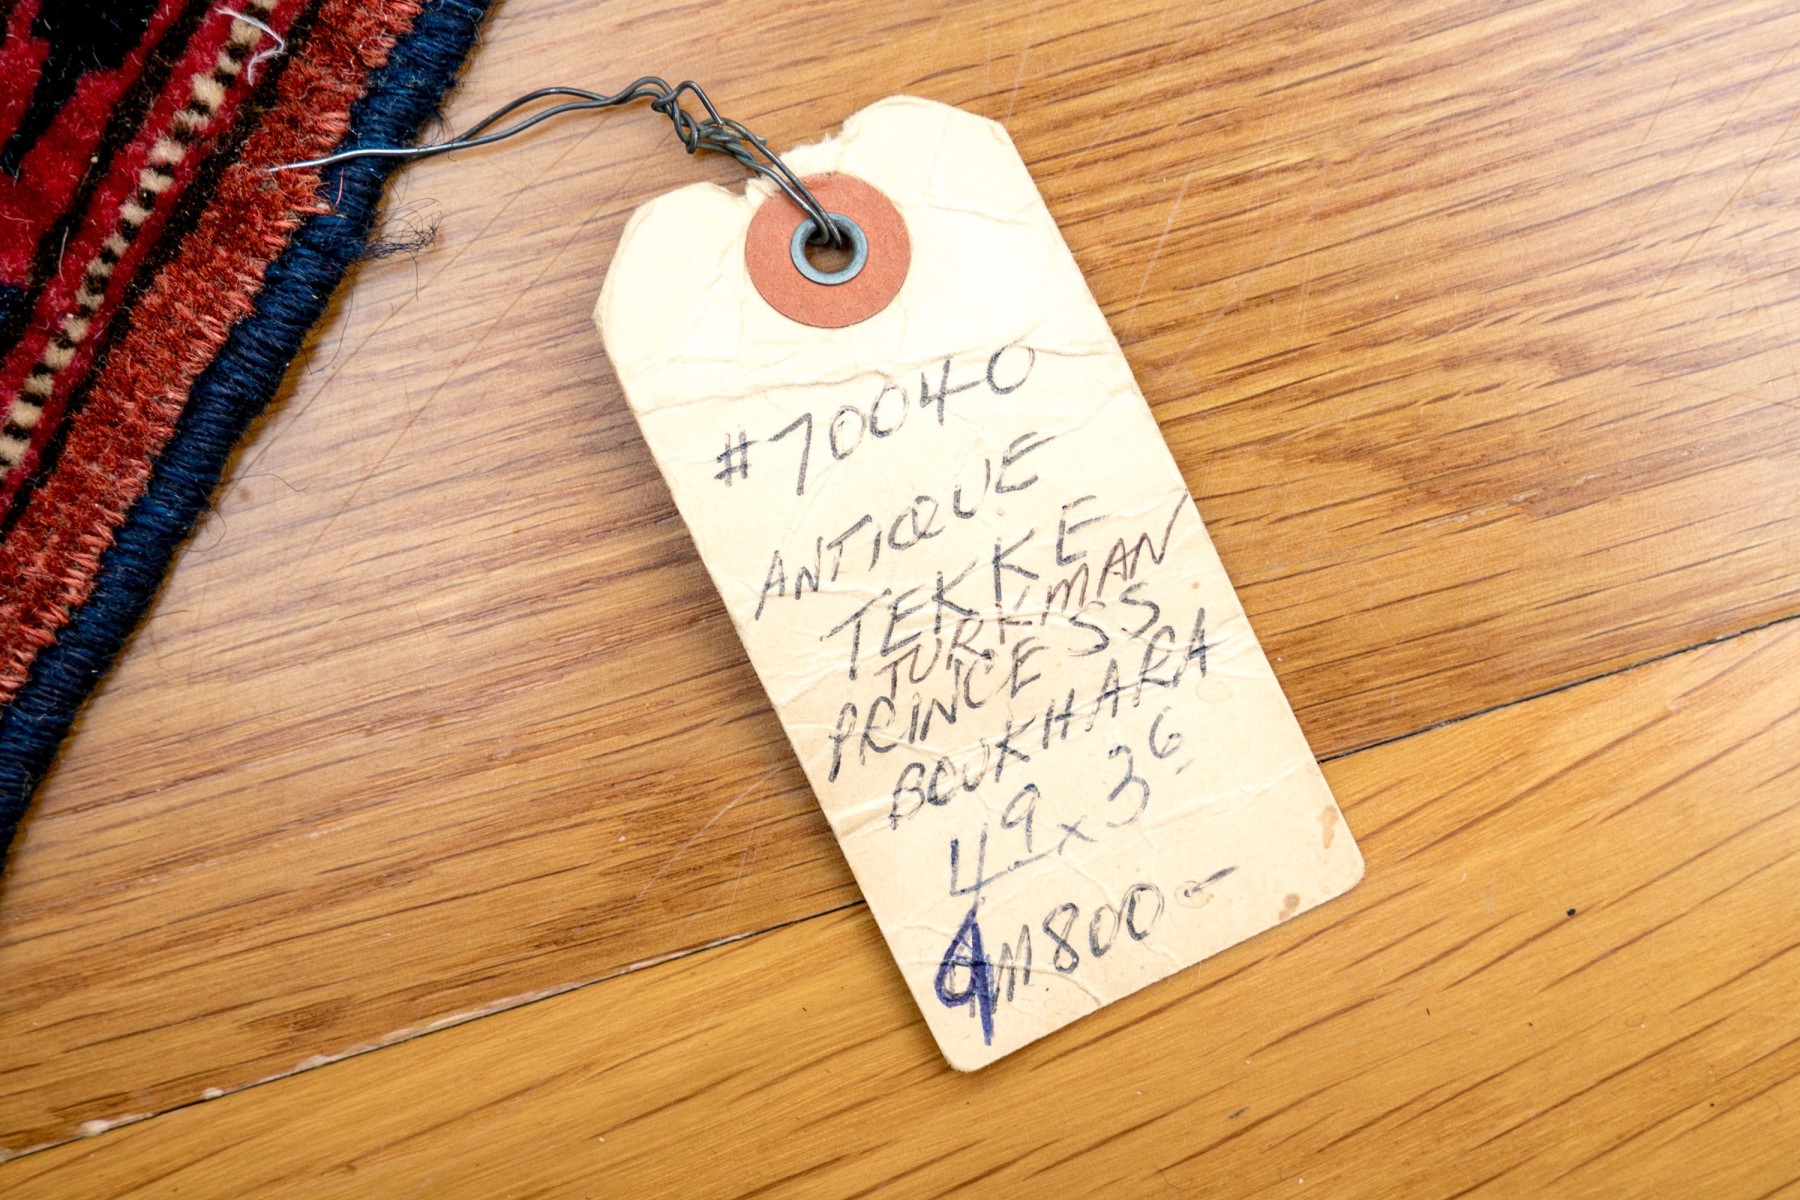 #70040
ANTIQUE
TEKKE
TURKMAN
PRINCESS
BOUKHARA
4⁹ x 3⁶
M800-